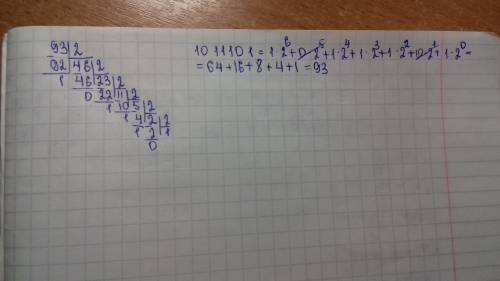 93|2
92|46|2
1 46|23|2
0 22|11|2
1 10|5|2
1 4|2|2
1 2|1
0
1011101 = 1·2⁶+0·2⁵+1·2⁴+1·2³+1·2²+0·2¹+1·2⁰=
=64+16+8+4+1=93